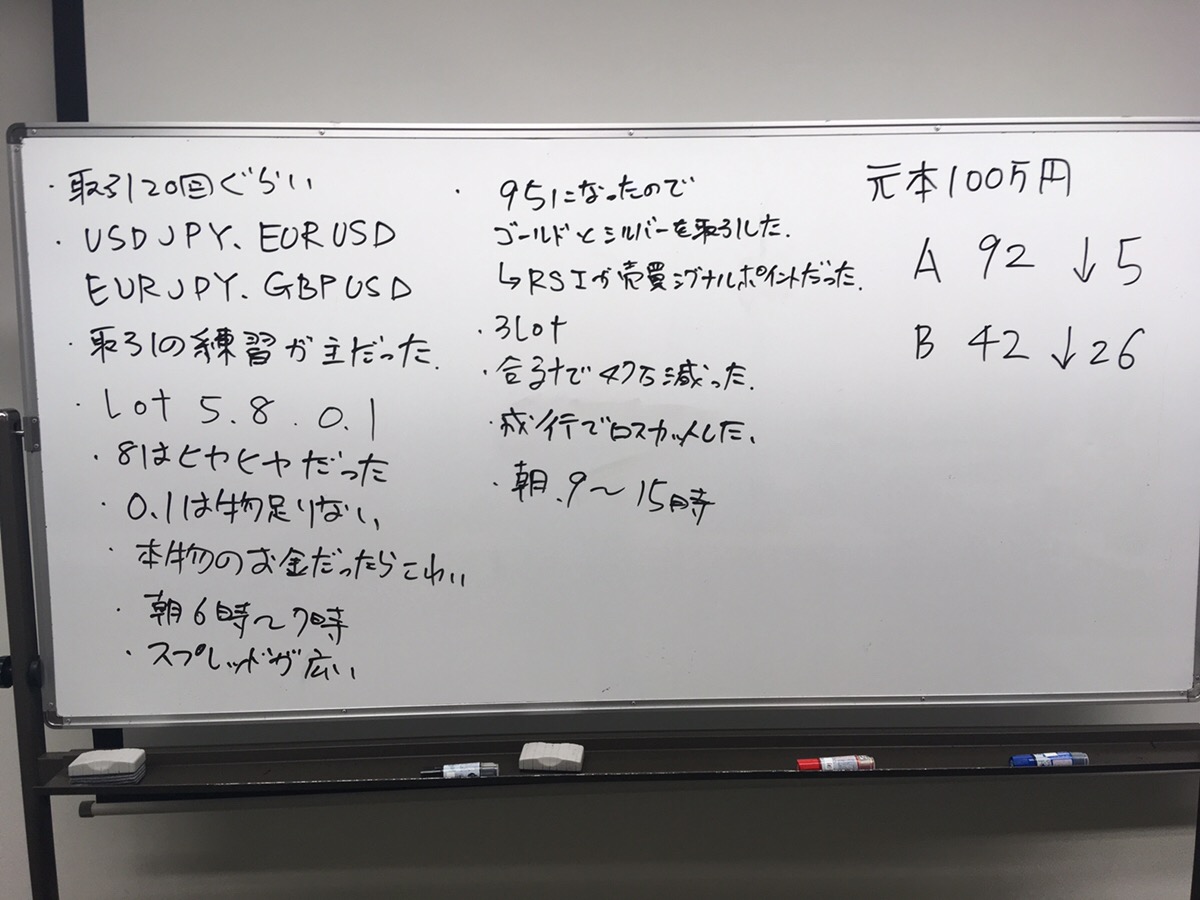 ・取引20回ぐらい
・USDJPY、EURUSD
EURJPY、GBPUSD
・取引の練習が主だった.
・Lot 5.8.0.1
・8はヒヤヒヤだった
・0.1は物足りない
・本物のお金だったらこわい
・朝6時〜7時
・スプレッドが広い
・95になったので
ゴールドとシルバーを取引した.
↳RSIが売買シグナルポイントだった.
・3Lot
・合計で47万減った.
・成行でロスカットした、
・朝.9〜15時
元本100万円
A 92 ↓5
B 42 ↓26